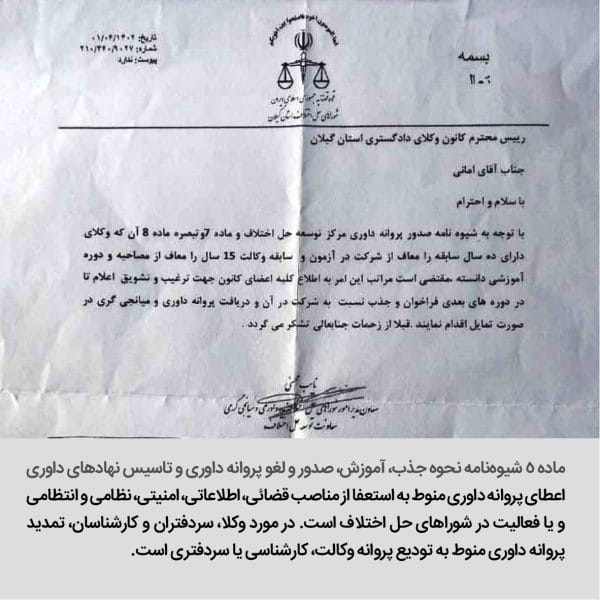 تاریخ: ۱۴۰۲/۰۴/۰۱
شماره: ۲۱۰/۴۴۰/۹۰۲۷
پیوست: ندارد
بسمه
قوه قضائیه جمهوری اسلامی ایران
شوراهای حل اختلاف استان گیلان
رییس محترم کانون وکلای دادگستری استان گیلان
جناب آقای امانی
با سلام و احترام
با توجه به شیوه نامه صدور پروانه داوری مرکز توسعه حل اختلاف و ماده 7وتبصره ماده 8 آن که وکلای
دارای ده سال سابقه را معاف از شرکت در آزمون و سابقه وکالت 15 سال را معاف از مصاحبه و دوره
آموزشی دانسته ،مقتضی است مراتب این امر به اطلاع کلیه اعضای کانون جهت ترغیب و تشویق اعلام تا
در دوره های بعدی فراخوان و جذب نسبت به شرکت در آن و دریافت پروانه داوری و میانجی گری در
صورت تمایل اقدام نمایند .قبلا از زحمات جنابعالی تشکر می گردد .
معاونت توسعه حل اختلاف
ماده ۵ شیوه‌نامه نحوه جذب، آموزش، صدور و لغو پروانه داوری و تاسیس نهادهای داوری
اعطای پروانه داوری منوط به استعفا از مناصب قضائی، اطلاعاتی، امنیتی، نظامی و انتظامی
و یا فعالیت در شوراهای حل اختلاف است. در مورد وکلا، سردفتران و کارشناسان، تمدید
پروانه داوری منوط به تودیع پروانه وکالت، کارشناسی یا سردفتری است.